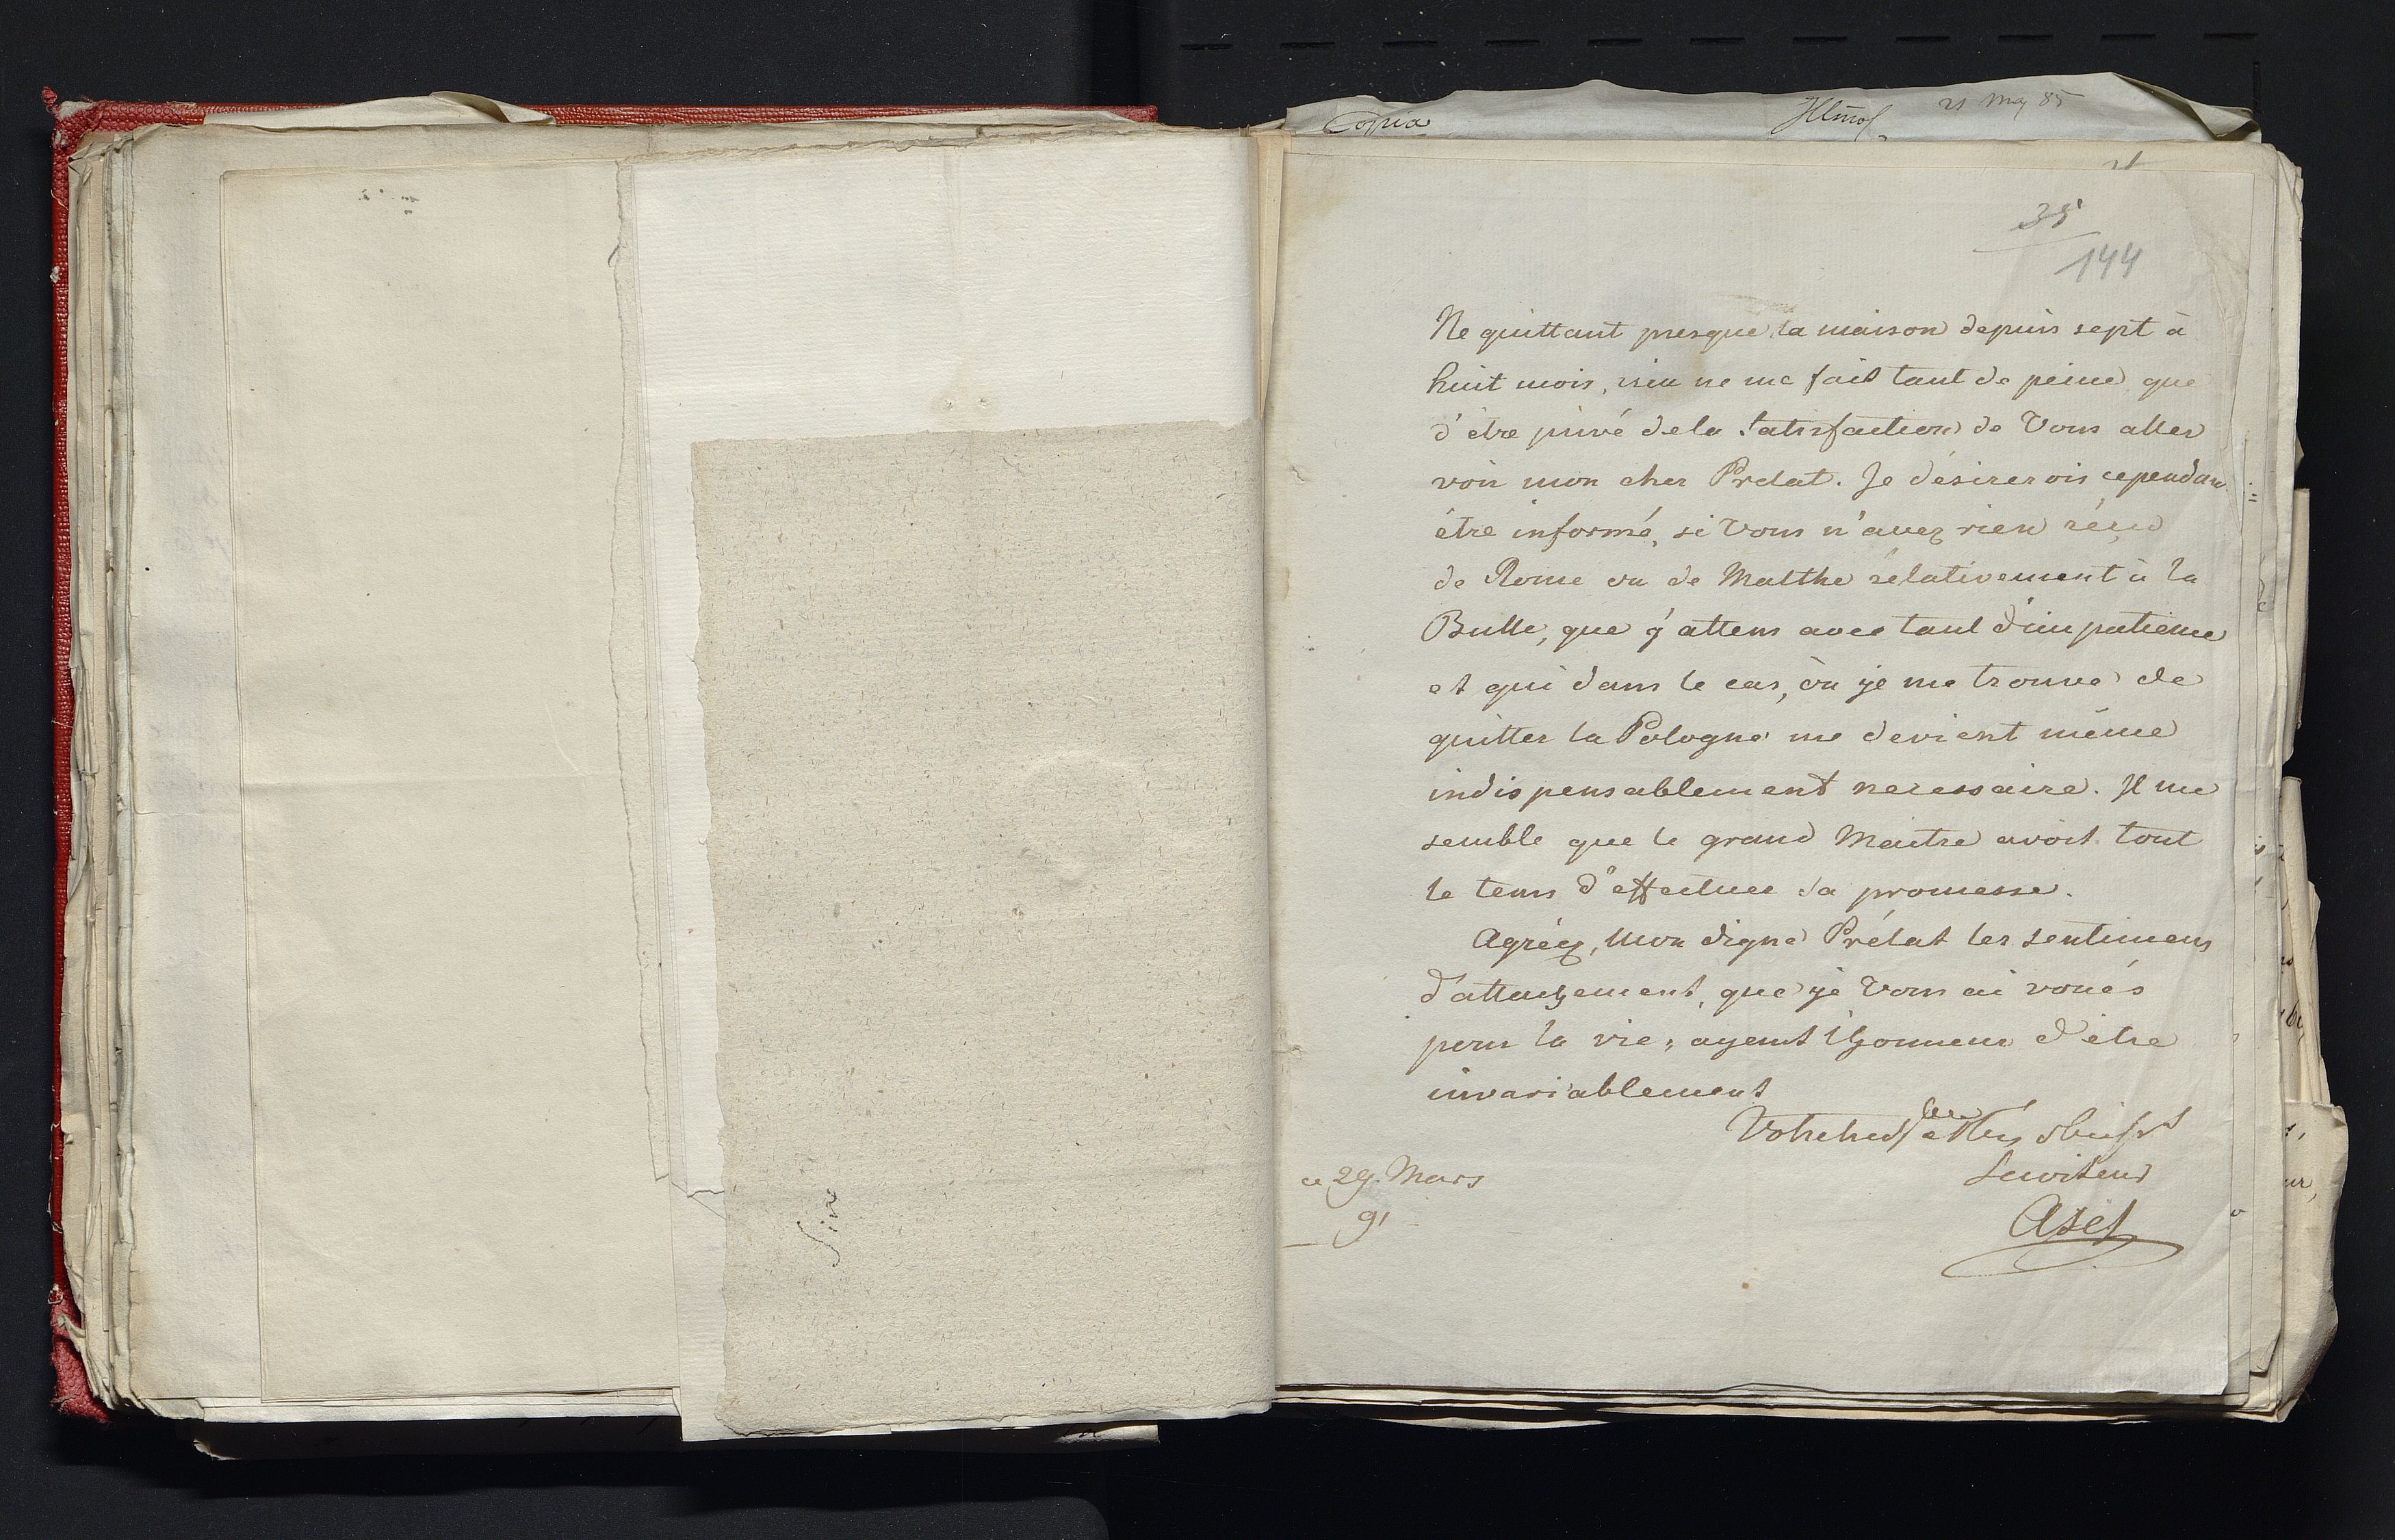 Copia
21 May 85
35
144
Ne quittant presque la maison depuis sept à
huit mois, rien ne me fait tant de peine que
d'être privé dela Satisfaction de Vous aller
voir mon cher Prelat. Je désirerois cependan
être informé, si Vous n'avez rien réçu
de Rome ou de Malthe rélativement à la
Bulle, que j'attens avec tant d'impatience
et qui dans le cas, òu je me trouve de
quitter la Pologne me devient même
indispensablement necessaire. Il me
semble que le grand Maitre avoit tout
le tems d'effectuer sa promesse.
Agréez, mon digne Prélat les sentimens
d'attachement, que je Vous ai voués
pour la vie, ayant l'honneur d'etre
invariablement
Serviteur
ce 29. Mars
91
Sir